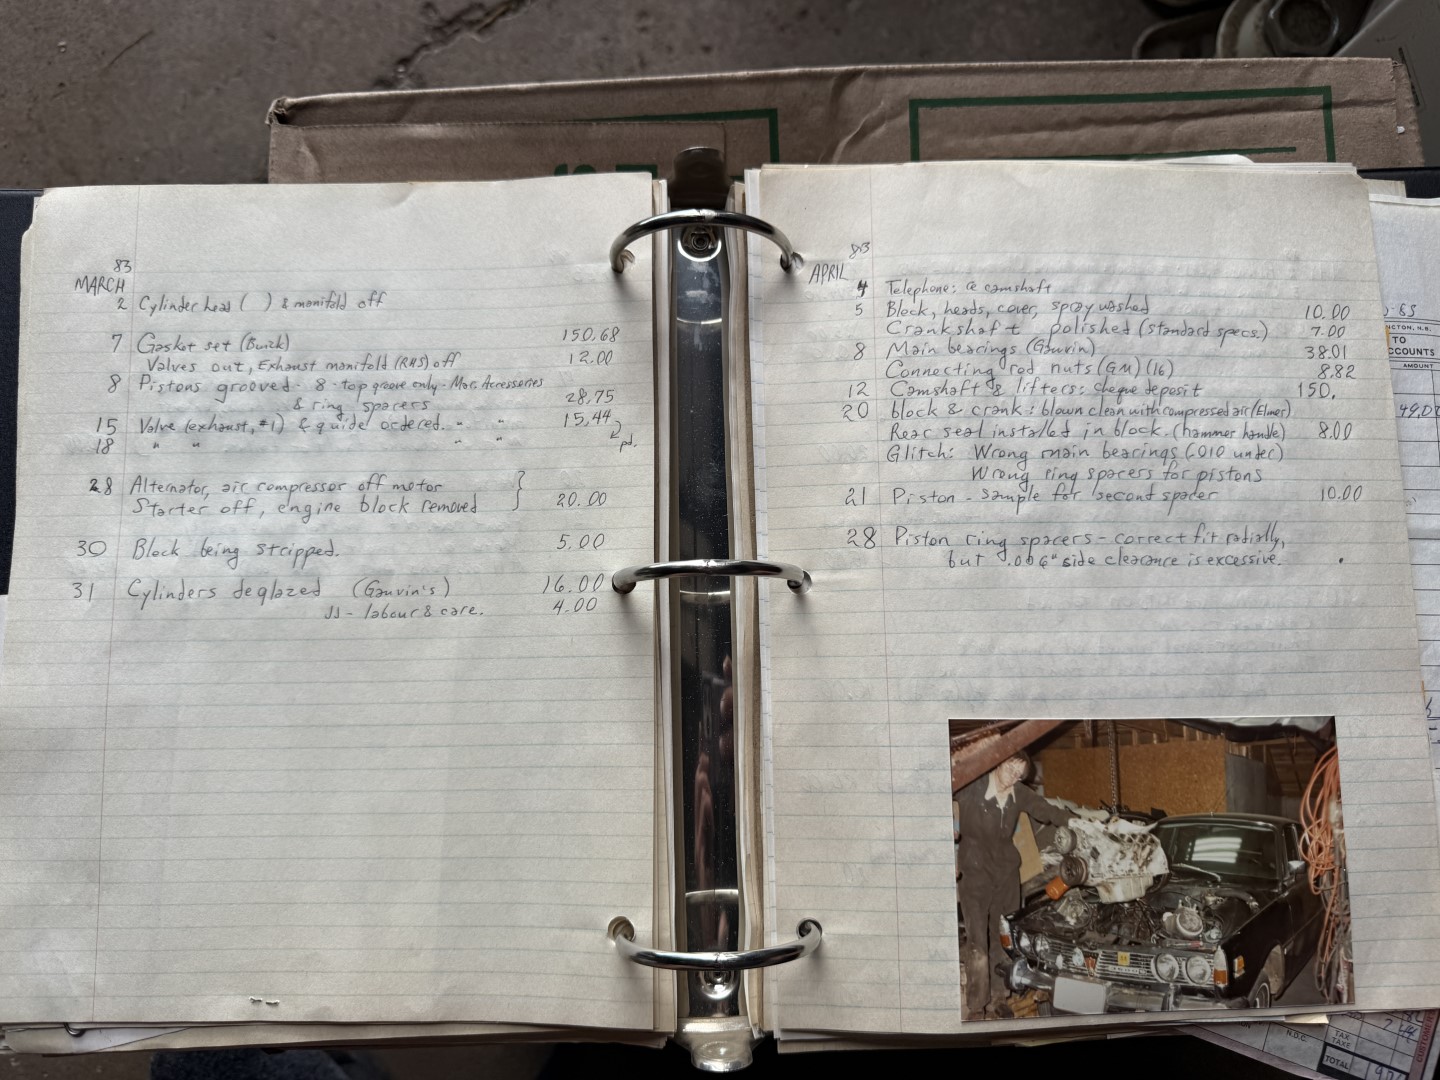 83
MARCH
2 Cylinder head ( ) & manifold off
7 Gasket set (Buick) 150.68
Valves out, Exhaust manifold (RHS) off 12.00
8 Pistons grooved - 8 - top groove only - Mac. Accessories
& ring spacers 28.75
15 Valve (exhaust, #1) & guide ordered. " " 15.44
18 " " " " pd.
28 Alternator, air compressor off motor
Starter off, engine block removed 20.00
30 Block being stripped. 5.00
31 Cylinders deglazed (Gauvin's) 16.00
JJ - labour & care. 4.00
83
APRIL
4 Telephone: re camshaft
5 Block, heads, cover, spray washed 10.00
Crankshaft polished (standard specs.) 7.00
8 Main bearings (Gauvin) 38.01
Connecting rod nuts (GM) (16) 8.82
12 Camshaft & lifters: cheque deposit 150.
20 block & crank: blown clean with compressed air (Elmer)
Rear seal installed in block. (hammer handle) 8.00
Glitch: Wrong main bearings (.010 under)
Wrong ring spacers for pistons
21 Piston - sample for second spacer 10.00
28 Piston ring spacers - correct fit radially,
but .006" side clearance is excessive.
CTON, N.B.
TO
CCOUNTS
AMOUNT
N.D.C
TAX
TAXE
TOTAL
CUSTOMER